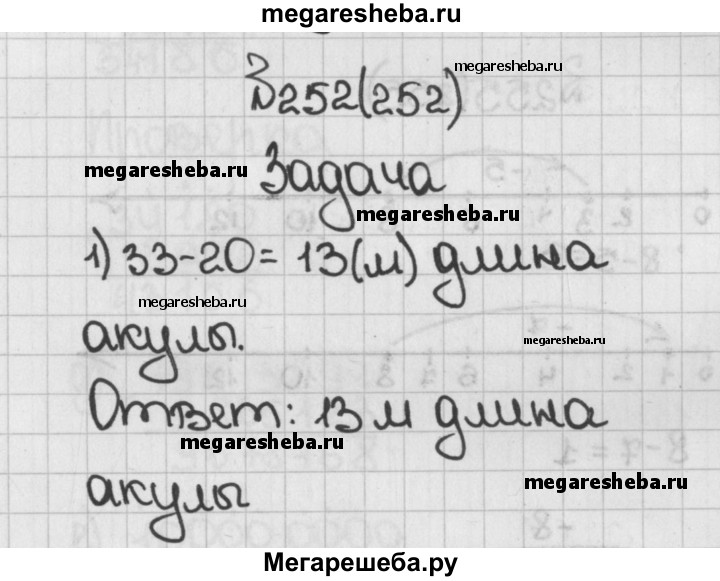 megaresheba.ru
megaresheba.ru
№252(252)
megaresheba.ru
Задача
megaresheba.ru
1) 33-20= 13(м) длина
megaresheba.ru
акулы.
megaresheba.ru
Ответ: 13 м длина
megaresheba.ru
акулы
megaresheba.ru
Мегарешеба.ру